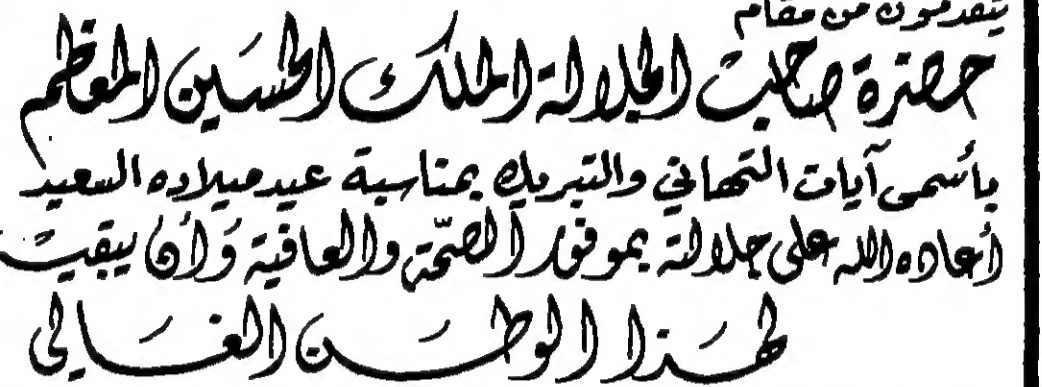 يتقدمون من مقام
حضرة صاحب الجلالة الملك الحسين المعظم
بأسمى آيات التهاني والتبريك بمناسبة عيد ميلاده السعيد
أعاده الله على جلالته بموفور الصحّة والعافية وأن يبقيه
لهذا الوطن الغالي